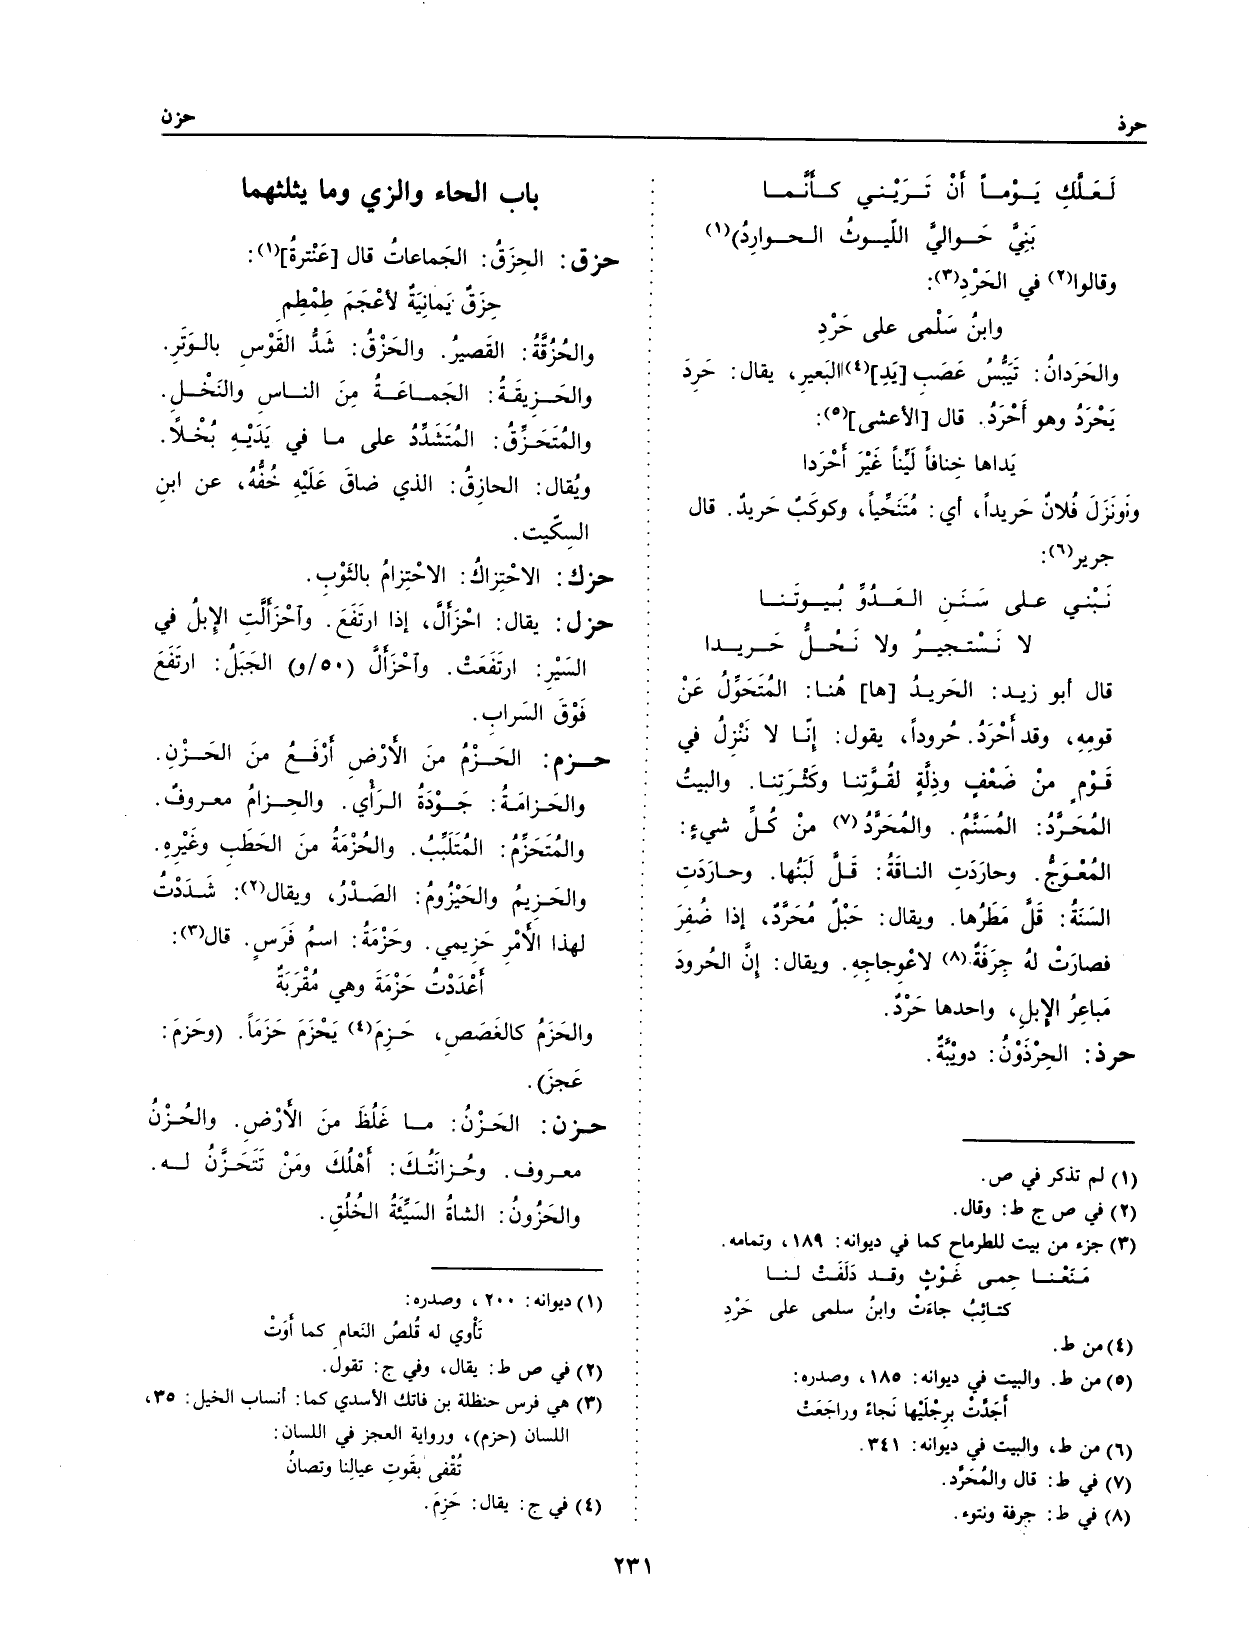 حرذ
حزن
لَعَلَّكِ يَــوْمــاً أَنْ تَــرَيْــنـي كــأَنَّـمــا
بَنِيَّ حَــوالِيَّ اللّيــوثُ الـحــوارِدُ)(١)
وقالوا(٢) في الحَرْدِ(٣):
وابنُ سَلْمى على حَرْدِ
والحَرَدانُ: تَيَبُّسُ عَصَبِ [يَدِ](٤) البَعير، يقال: حَرِدَ
يَحْرَدُ وهو أَحْرَدُ. قال [الأعشى](٥):
يَداها خِنافاً لَيِّناً غَيْرَ أَحْرَدا
وَنَزَلَ فُلانٌ حَريداً، أي: مُتَنَحِّياً، وكوكَبٌ حَريدٌ. قال
جرير(٦):
نَبْني على سَنَنِ العَدُوِّ بُيوتَنا
لا نَسْتجيرُ ولا نَحُلُّ حَريدا
قال أبو زيد: الحَريدُ [ها] هُنا: المُتَحَوِّلُ عَنْ
قومِهِ، وقد أَحْرَدُ. حُروداً، يقول: إنّا لا نَنْزِلُ في
قَوْمٍ منْ ضَعْفٍ وذِلَّةٍ لقُوَّتِنا وكَثْرَتِنا. والبيتُ
المُحَرَّدُ: المُسَنَّم. والمُحَرَّدُ(٧) منْ كُلِّ شيءٍ:
المُعْوَجُّ. وحارَدَتِ الناقَةُ: قَلَّ لَبَنُها. وحارَدَتِ
السَنَةُ: قَلَّ مَطَرُها. ويقال: حَبْلٌ مُحَرَّدٌ، إذا ضُفِرَ
فصارَتْ لهُ حِرَفَةٌ(٨) لاعْوجاجِهِ. ويقال: إنَّ الحُرودَ
مَباعِرُ الإبلِ، واحدها حَرْدٌ.
حرذ: الحِرْذَوْنُ: دويْبَّةٌ.
(١) لم تذكر في ص.
(٢) في ص ج ط: وقال.
(٣) جزء من بيت للطرماح كما في ديوانه: ١٨٩، وتمامه.
مَنَعْنـا حِمى غَوْثٍ وقـد دَلَفَتْ لنـا
كتائِبُ جاءَتْ وابنُ سلمى على حَرْدِ
(٤) من ط.
(٥) من ط. والبيت في ديوانه: ١٨٥، وصدره:
أَجَدَّتْ بِرِجْلَيْها نَجاءً وراجَعَتْ
(٦) من ط، والبيت في ديوانه: ٣٤١.
(٧) في ط: قال والمُحَرَّد.
(٨) في ط: حِرفة ونتوء.
باب الحاء والزي وما يثلثهما
حزق: الحِزَقُ: الجَماعاتُ قال [عَنْترةُ](١):
حِزَقٌ يَمانِيَةٌ لأعْجَمَ طِمْطِمِ
والحُزُقَّةُ: القَصيرُ. والحَزْقُ: شَدُّ القَوْسِ بالوَتَرِ.
والحَـزيقَـةُ: الجَمـاعَـةُ مِنَ النـاسِ والنَخْـلِ.
والمُتَحَـزِّقُ: المُتَشَدِّدُ على ما في يَدَيْـهِ بُخْـلاً.
ويُقال: الحازِقُ: الذي ضاقَ عَلَيْهِ خُفُّهُ، عن ابنِ
السِكّيت.
حزك: الاحْتِزاكُ: الاحْتِزامُ بالثَوْبِ.
حزل: يقال: احْزَأَلَّ، إذا ارتَفَعَ. وآحْزَأَلَّتِ الإبِلُ في
السَيْرِ: ارتَفَعَتْ. وآحْزَأَلَّ (٥٠/و) الجَبَلُ: ارتَفَعَ
فَوْقَ السَراب.
حـزم: الحَـزْمُ منَ الأَرْضِ أَرْفَـعُ منَ الحَـزْنِ.
والحَـزامَـةُ: جَـوْدَةُ الـرَأْي. والحِـزامُ معـروفٌ.
والمُتَحَزِّمُ: المُتَلَبِّبُ. والحُزْمَةُ منَ الحَطَبِ وغَيْرِهِ.
والحَـزيمُ والحَيْزُومُ: الصَـدْرُ، ويقال(٢): شَـدَدْتُ
لهذا الأَمْرِ حَزيمي. وحَزْمَةُ: اسمُ فَرَسٍ. قال(٣):
أَعْدَدْتُ حَزْمَةَ وهي مُقْرَبَةٌ
والحَزَمُ كالغَصَصِ، حَـزِمَ(٤) يَحْزَمَ حَزَمَاً. (وحَزِمَ:
عَجَزَ).
حـزن: الحَزْنُ: مـا غَلُظَ منَ الأَرْضِ. والحُزْنُ
معـروف. وحُـزانَتُـكَ: أَهْلُكَ ومَنْ تَتَحَزَّنُ لـه.
والحَزُونُ: الشاةُ السَيِّئَةُ الخُلُقِ.
(١) ديوانه: ٢٠٠، وصدره:
تَأْوي له قُلُصُ النَعام كما أَوَتْ
(٢) في ص ط: يقال، وفي ج: تقول.
(٣) هي فرس حنظلة بن فاتك الأسدي كما: أنساب الخيل: ٣٥،
اللسان (حزم)، ورواية العجز في اللسان:
تُقْفى بقَوتِ عيالِنا وتُصانُ
(٤) في ج: يقال: حَزِمَ.
٢٣١